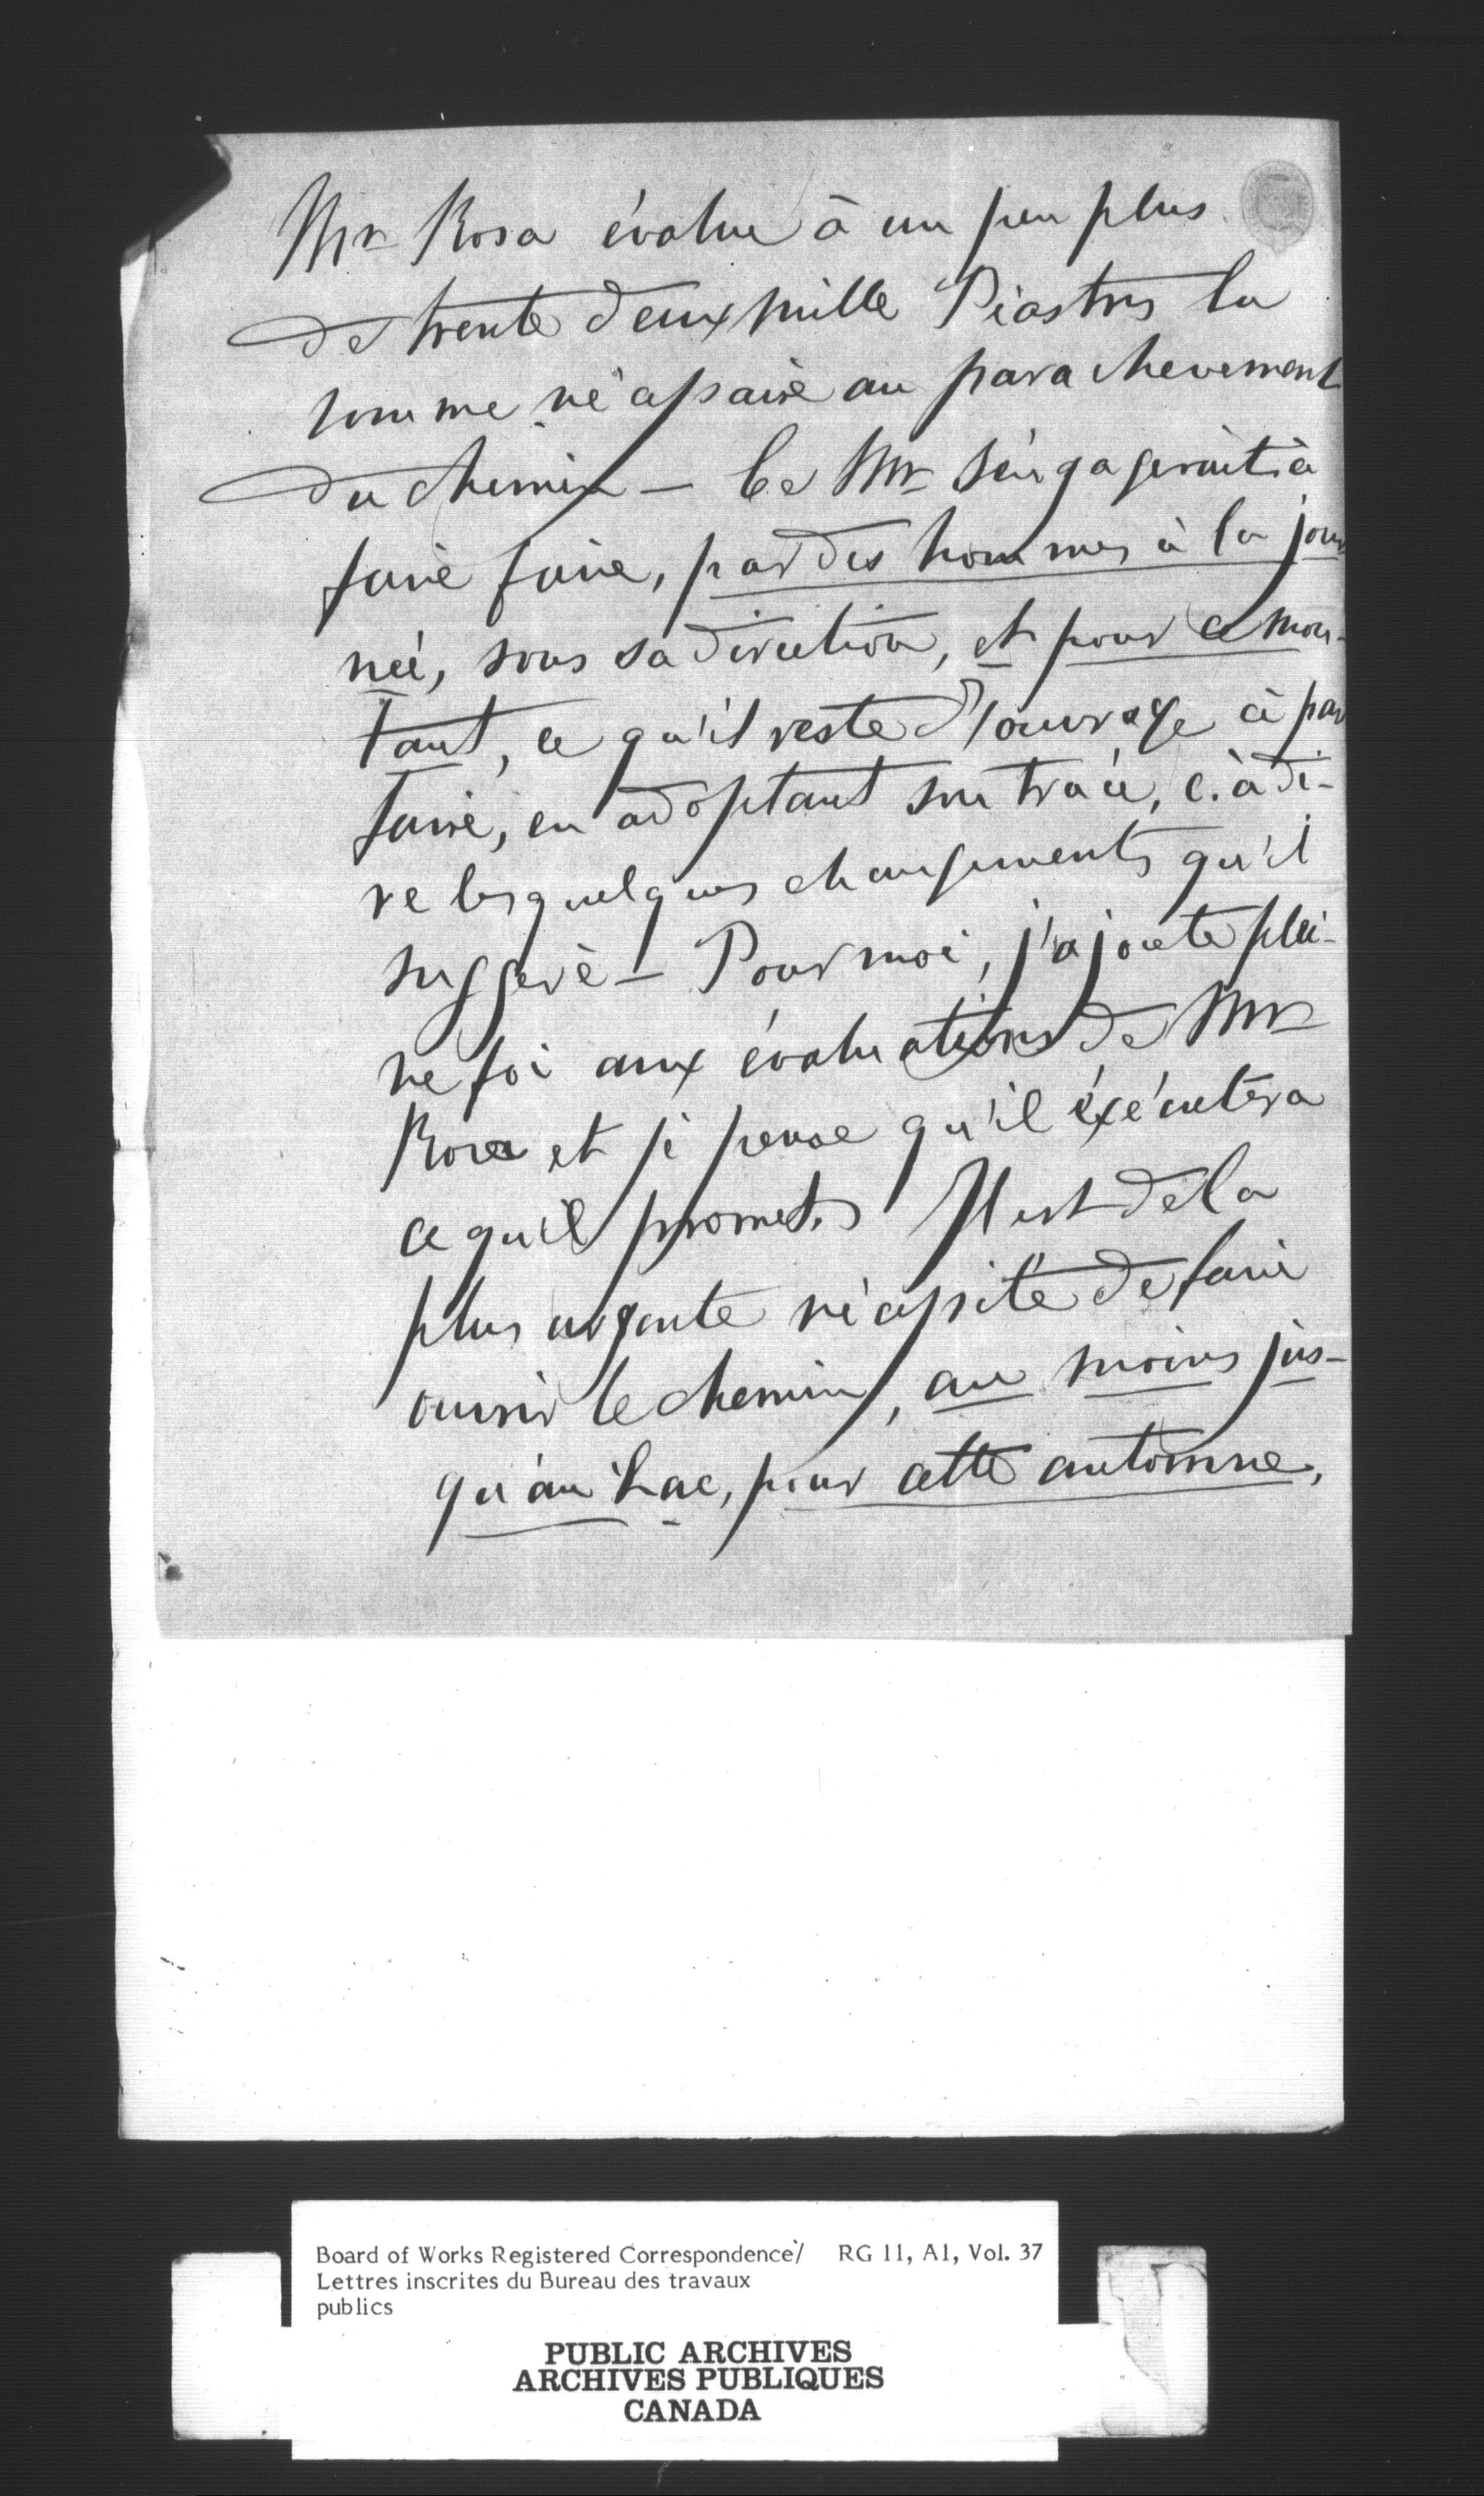 Mr Rosa évalue à un peu plus
de trente deux mille Piastres la
somme nécessaire au parachevement
du chemin — Ce Mr s'engagerait à
faire faire, par des hommes à la jour
née, sous sa direction, et pour ce mon-
tant, ce qu'il reste d'ouvrage à par
faire, en adoptant son tracé, c. à di-
re les quelques changements qu'il
suggère — Pour moi, j'ajoute plei-
ne foi aux évaluations de Mr
Rosa et je pense qu'il éxécutera
ce qu'il promet. Il est de la
plus urgente nécessité de faire
ouvrir le chemin, au moins jus-
qu'au Lac, pour cette automne,
Board of Works Registered Correspondence/ RG 11, A1, Vol. 37
Lettres inscrites du Bureau des travaux
publics
PUBLIC ARCHIVES
ARCHIVES PUBLIQUES
CANADA